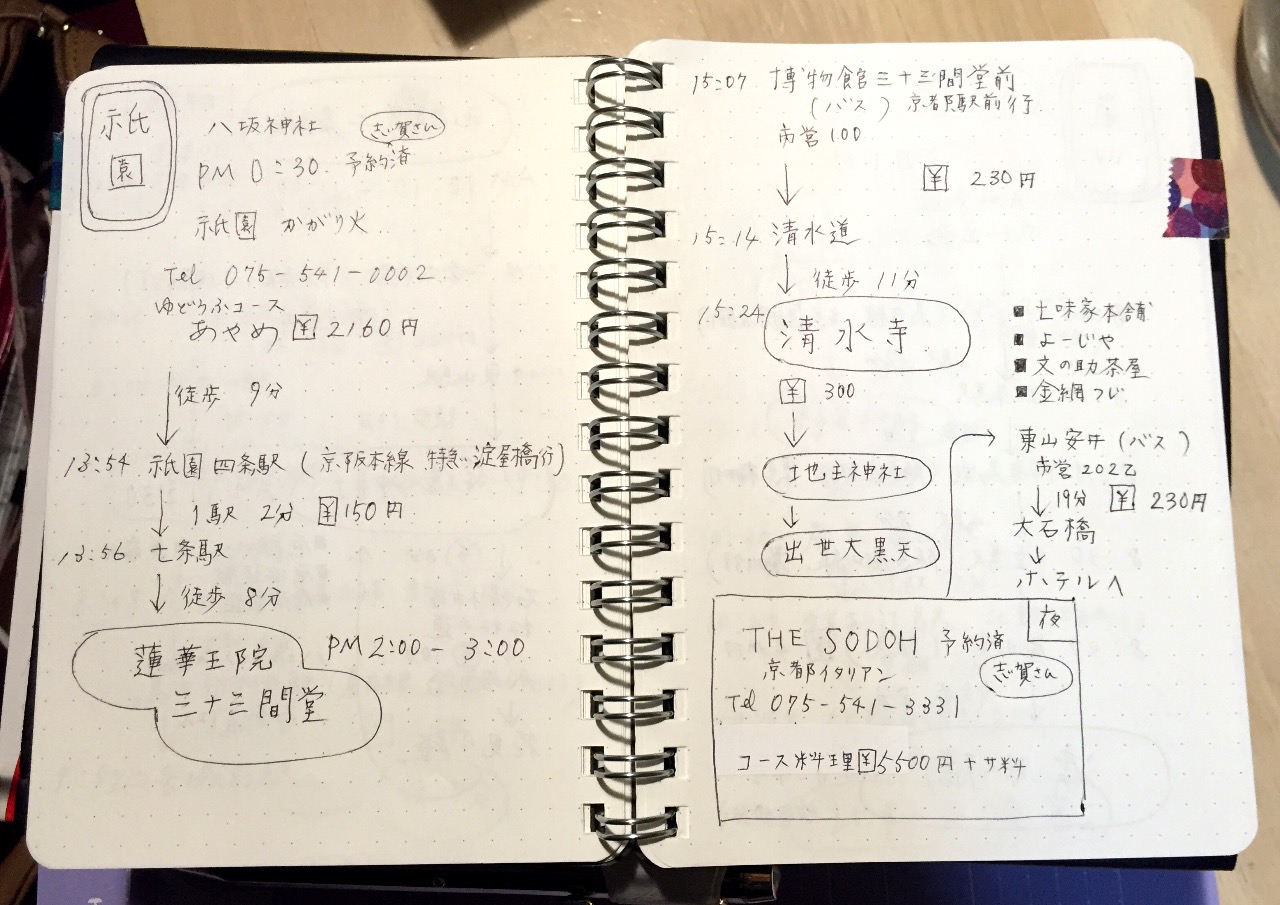 祇園
八坂神社 志賀さん
PM 0:30. 予約済
祇園 かがり火
Tel 075-541-0002
ゆどうふコース
あやめ ¥2160円
徒歩 9分
13:54. 祇園四条駅 (京阪本線 特急 淀屋橋行)
1駅 2分 ¥150円
13:56. 七条駅
徒歩 8分
蓮華王院 PM2:00 - 3:00
三十三間堂
15:07. 博物館三十三間堂前
(バス) 京都駅前行
市営100
¥ 230円
15:14. 清水道
徒歩 11分
15:24
清水寺
¥ 300
地主神社
出世大黒天
■ 七味家本舗
■ よーじや
■ 文の助茶屋
■ 金網つじ
東山安井 (バス)
市営202乙
19分 ¥ 230円
大石橋
ホテルへ
夜
THE SODOH 予約済
京都イタリアン 志賀さん
Tel 075-541-3331
コース料理¥5500円+サ料